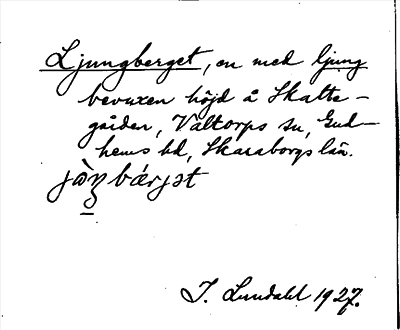 Ljungberget, en med ljung
bevuxen höjd å Skatte-
gården, Valtorps sn, Gud-
hems hd, Skaraborgs län.
bærjət
I. Lundahl 1927.